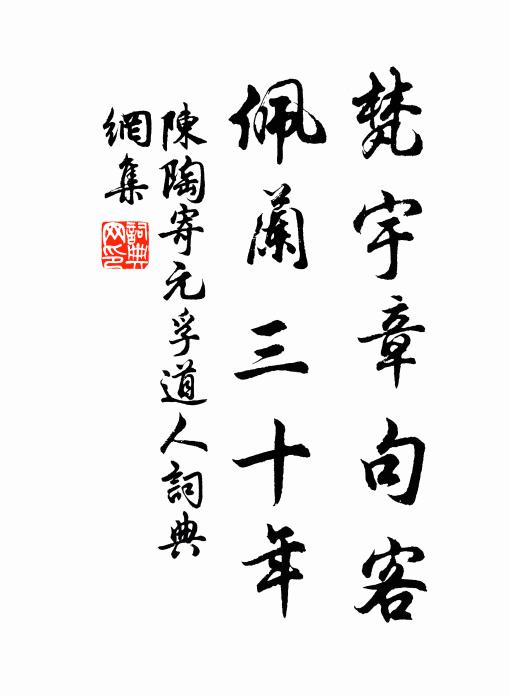 梵宇章句客
佩蘭三十年
陳陶寄元孚道人詞典
網集
詞典
网印